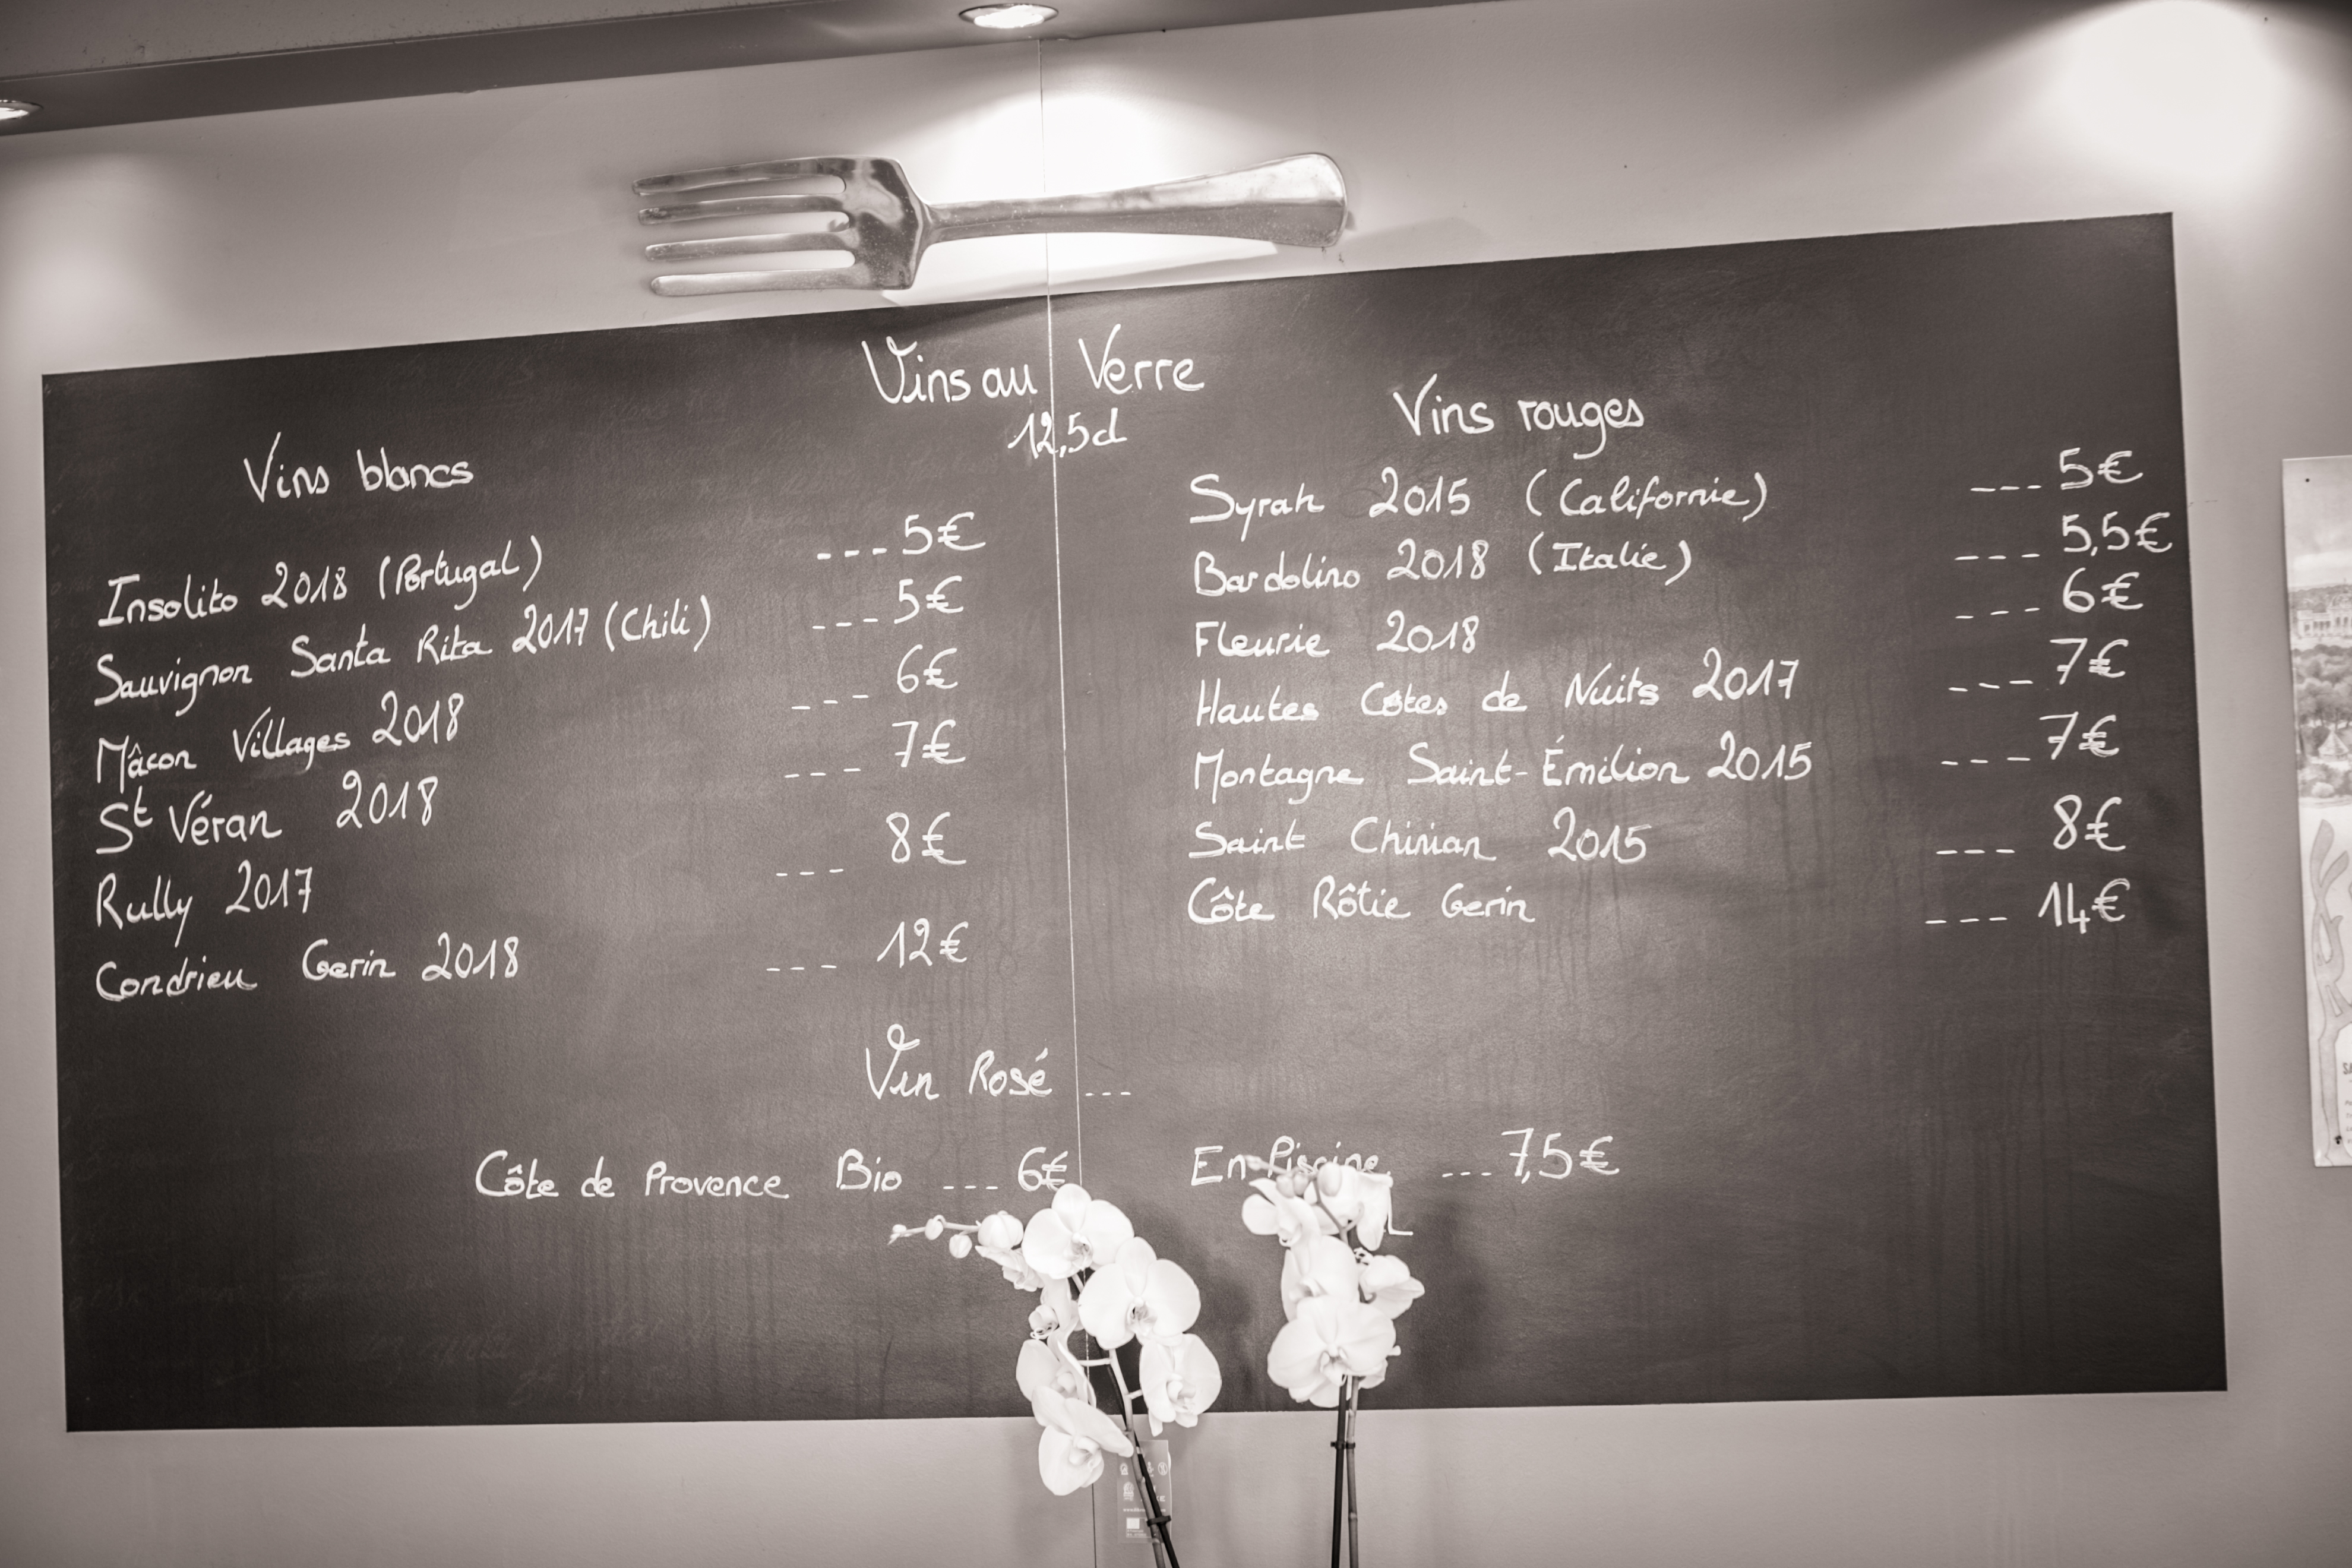 Vins au Verre
12,5cl
Vins blancs
Insolito 2018 (Portugal) --- 5€
Sauvignon Santa Rita 2017 (Chili) --- 5€
Mâcon Villages 2018 --- 6€
St Véran 2018 --- 7€
Rully 2017 --- 8€
Condrieu Gerin 2018 --- 12€
Vins rouges
Syrah 2015 (Californie) --- 5€
Bardolino 2018 (Italie) --- 5,5€
Fleurie 2018 --- 6€
Hautes Côtes de Nuits 2017 --- 7€
Montagne Saint-Émilion 2015 --- 7€
Saint Chinian 2015 --- 8€
Côte Rôtie Gerin --- 14€
Vin Rosé ---
Côte de Provence Bio --- 6€
En Piscine --- 7,5€